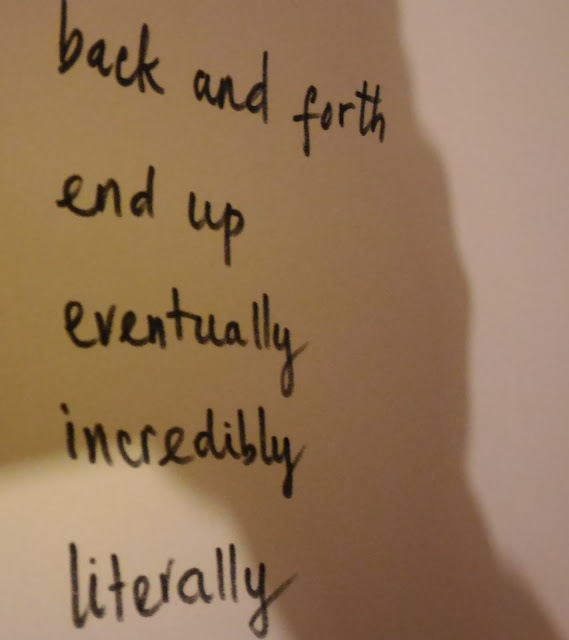 back and forth
end up
eventually
incredibly
literally